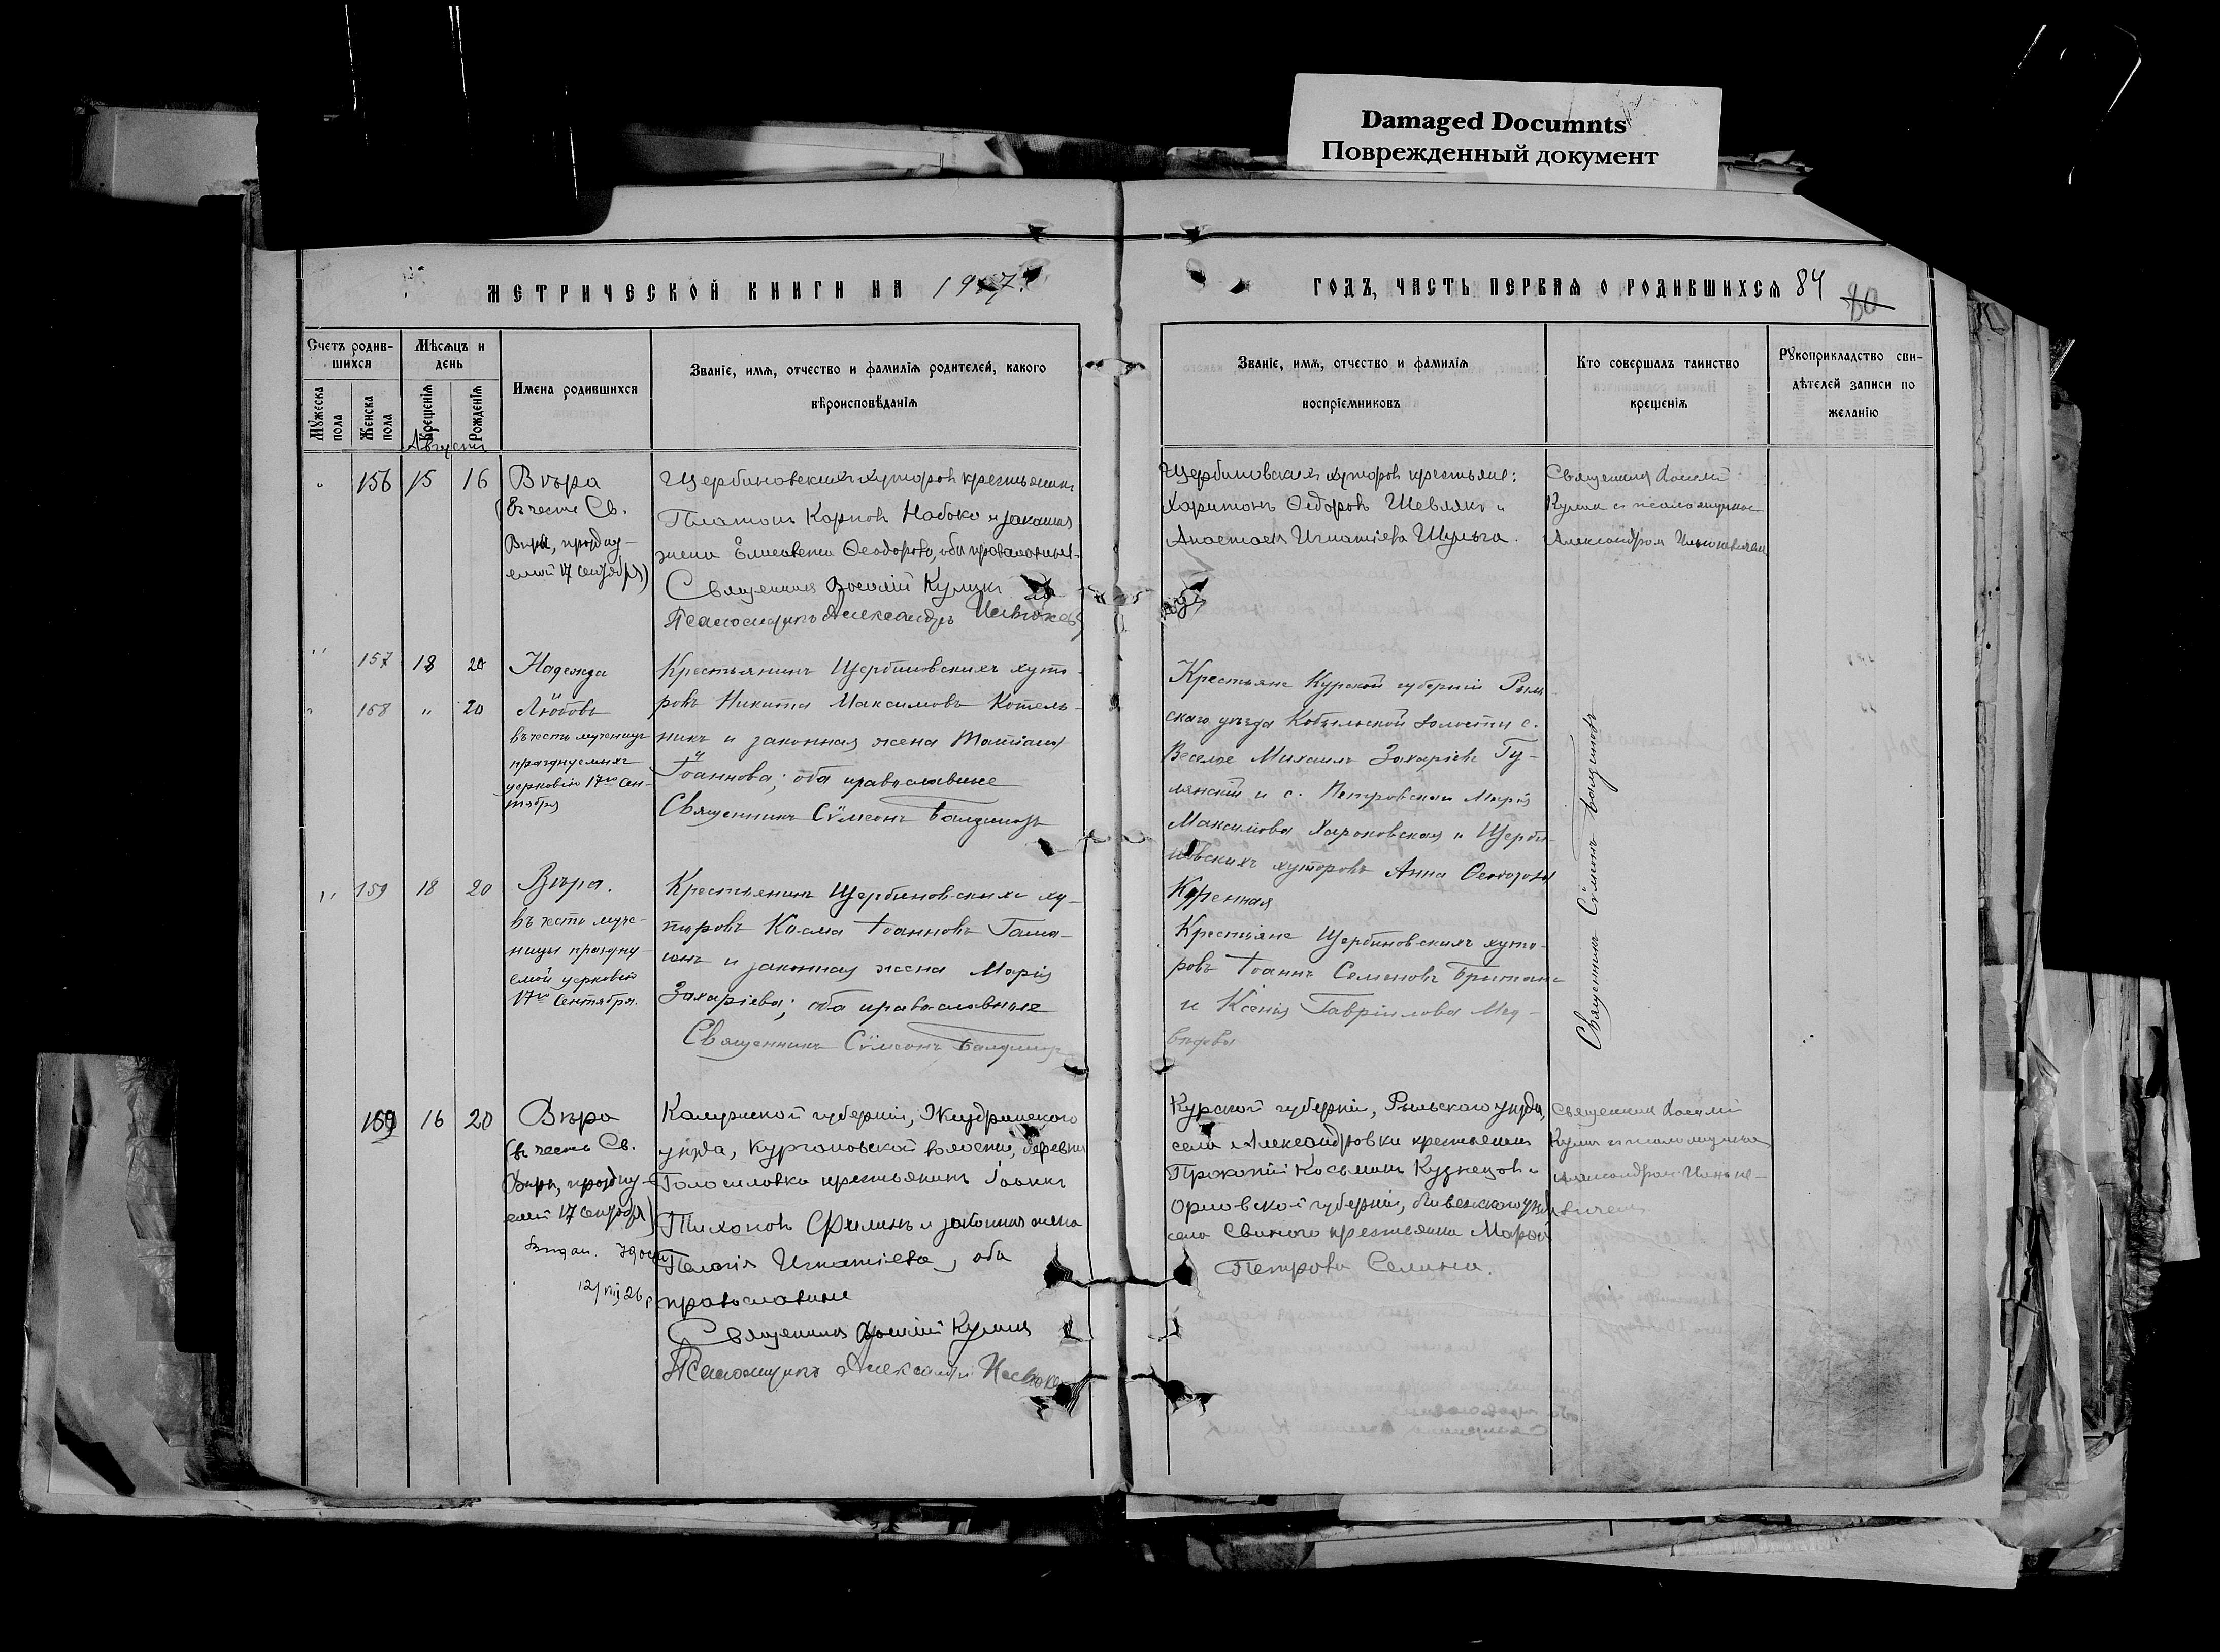 Damaged Documnts
Поврежденный документ
МЕТРИЧЕСКОЙ КНИГИ НА 1917
Счетъ родив-
шихся
Мѣсяцъ и
день
Мужеска
пола
Женска
пола
Крещенія
Рожденія
Имена родившихся
Званіе, имя, отчество и фамилія родителей, какого
вѣроисповѣданія
Августъ
156 15 16 Вѣра
(въ честь Св.
Вѣры, праздну-
емой 17 сентября)
Щербиновскихъ хуторовъ крестьянинъ
Платонъ Карповъ Набока и законная
жена Елисавета Феодорова, оба православные.
Священникъ Василій Куликъ
Псаломщикъ Александръ
157 18 20 Надежда
158 " 20 Любовь
въ честь мучениц
празднуемыхъ
церковію 17го Сен-
тября
Крестьянинъ Щербиновскихъ хуто-
ровъ Никита Максимовъ Котель-
никъ и законная жена Татіана
Іоаннова; оба православные
Священникъ Сѵмеонъ
159 18 20 Вѣра.
въ честь муче-
ницы праздну-
емой церковію
17го Сентября.
Крестьянинъ Щербиновскихъ ху-
торовъ Косма Іоанновъ
и законная жена Марія
Захаріева; оба православные
Священникъ Сѵмеонъ
159 16 20 Вѣра
(въ честь Св.
Вѣры, праздну-
емой 17 сентября)
Выдан.
12/VIII 26 г
Калужской губерніи, Жиздринскаго
уѣзда, Кургановской волости, деревни
Голосиловка крестьянинъ Іоаннъ
Тихоновъ Филинъ и законная жена
Пелагія Игнатіева, оба
православные
Священникъ Василій Куликъ
Псаломщикъ Александръ
ГОДЪ, ЧАСТЬ ПЕРВАЯ О РОДИВШИХСЯ 84
80
Званіе, имя, отчество и фамилія
воспріемниковъ
Кто совершалъ таинство
крещенія
Рукоприкладство сви-
дѣтелей записи по
желанію
Щербиновскихъ хуторовъ крестьяне:
Харитонъ Федоровъ Шевлякъ и
Анастасія Игнатіева Шульга.
Священникъ Василій
Куликъ съ псаломщикомъ
Александромъ
Крестьяне Курской губерніи Рыль-
скаго уѣзда Кобыльской волости с.
Веселое Михаилъ Захаріевъ Гу-
лянскій и с. Петровскаго Марія
Максимова Харьковская и Щерби-
новскихъ хуторовъ Анна Феодорова
Куренная
Крестьяне Щербиновскихъ хуто-
ровъ Іоаннъ Семеновъ Британъ
и Ксенія Гавріилова Мед-
вѣдева
Священникъ Сѵмеонъ
Курской губерніи, Рыльскаго уѣзда,
села Александровки крестьянинъ
Прокопій Косьминъ Кузнецовъ и
Орловской губерніи, Ливенскаго уѣзда
села Свиного крестьянка Марѳа
Петрова Селина.
Священникъ Василій
Куликъ съ псаломщикомъ
Александромъ